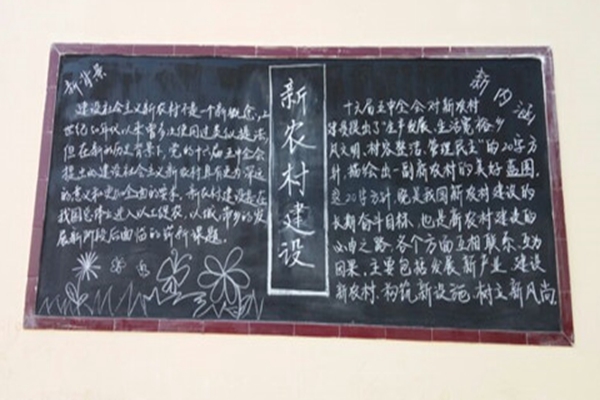 新背景
建设社会主义新农村不是一个新概念,上
世纪50年代以来曾多次使用过类似提法,
但在新的历史背景下,党的十六届五中全会
提出的建设社会主义新农村具有更为深远
的意义和更加全面的要求。新农村建设是在
我国总体上进入以工促农、以城带乡的发
展新阶段后面临的崭新课题。
新农村建设
新内涵
十六届五中全会对新农村
建设提出了"生产发展、生活宽裕、乡
风文明、村容整洁、管理民主"的20字方
针,描绘出一副新农村的美好蓝图。
这20字方针,既是我国新农村建设的
长期奋斗目标,也是新农村建设的
必由之路。各个方面互相联系、互为
因果,主要包括发展新产业、建设
新农村、构筑新设施、树立新风尚